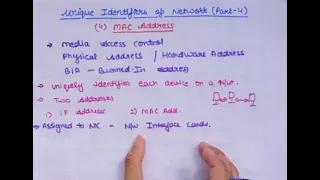 Unique Identifiers of Network (Part-4)
(4) MAC Address
→ Media Access Control
Physical Address / Hardware Address
BIA – Burned-In Address
→ Uniquely identifies each device on a N/w.
→ Two Addresses
1) IP Address 2) MAC Add.
→ Assigned to NIC - N/w Interface Cards.